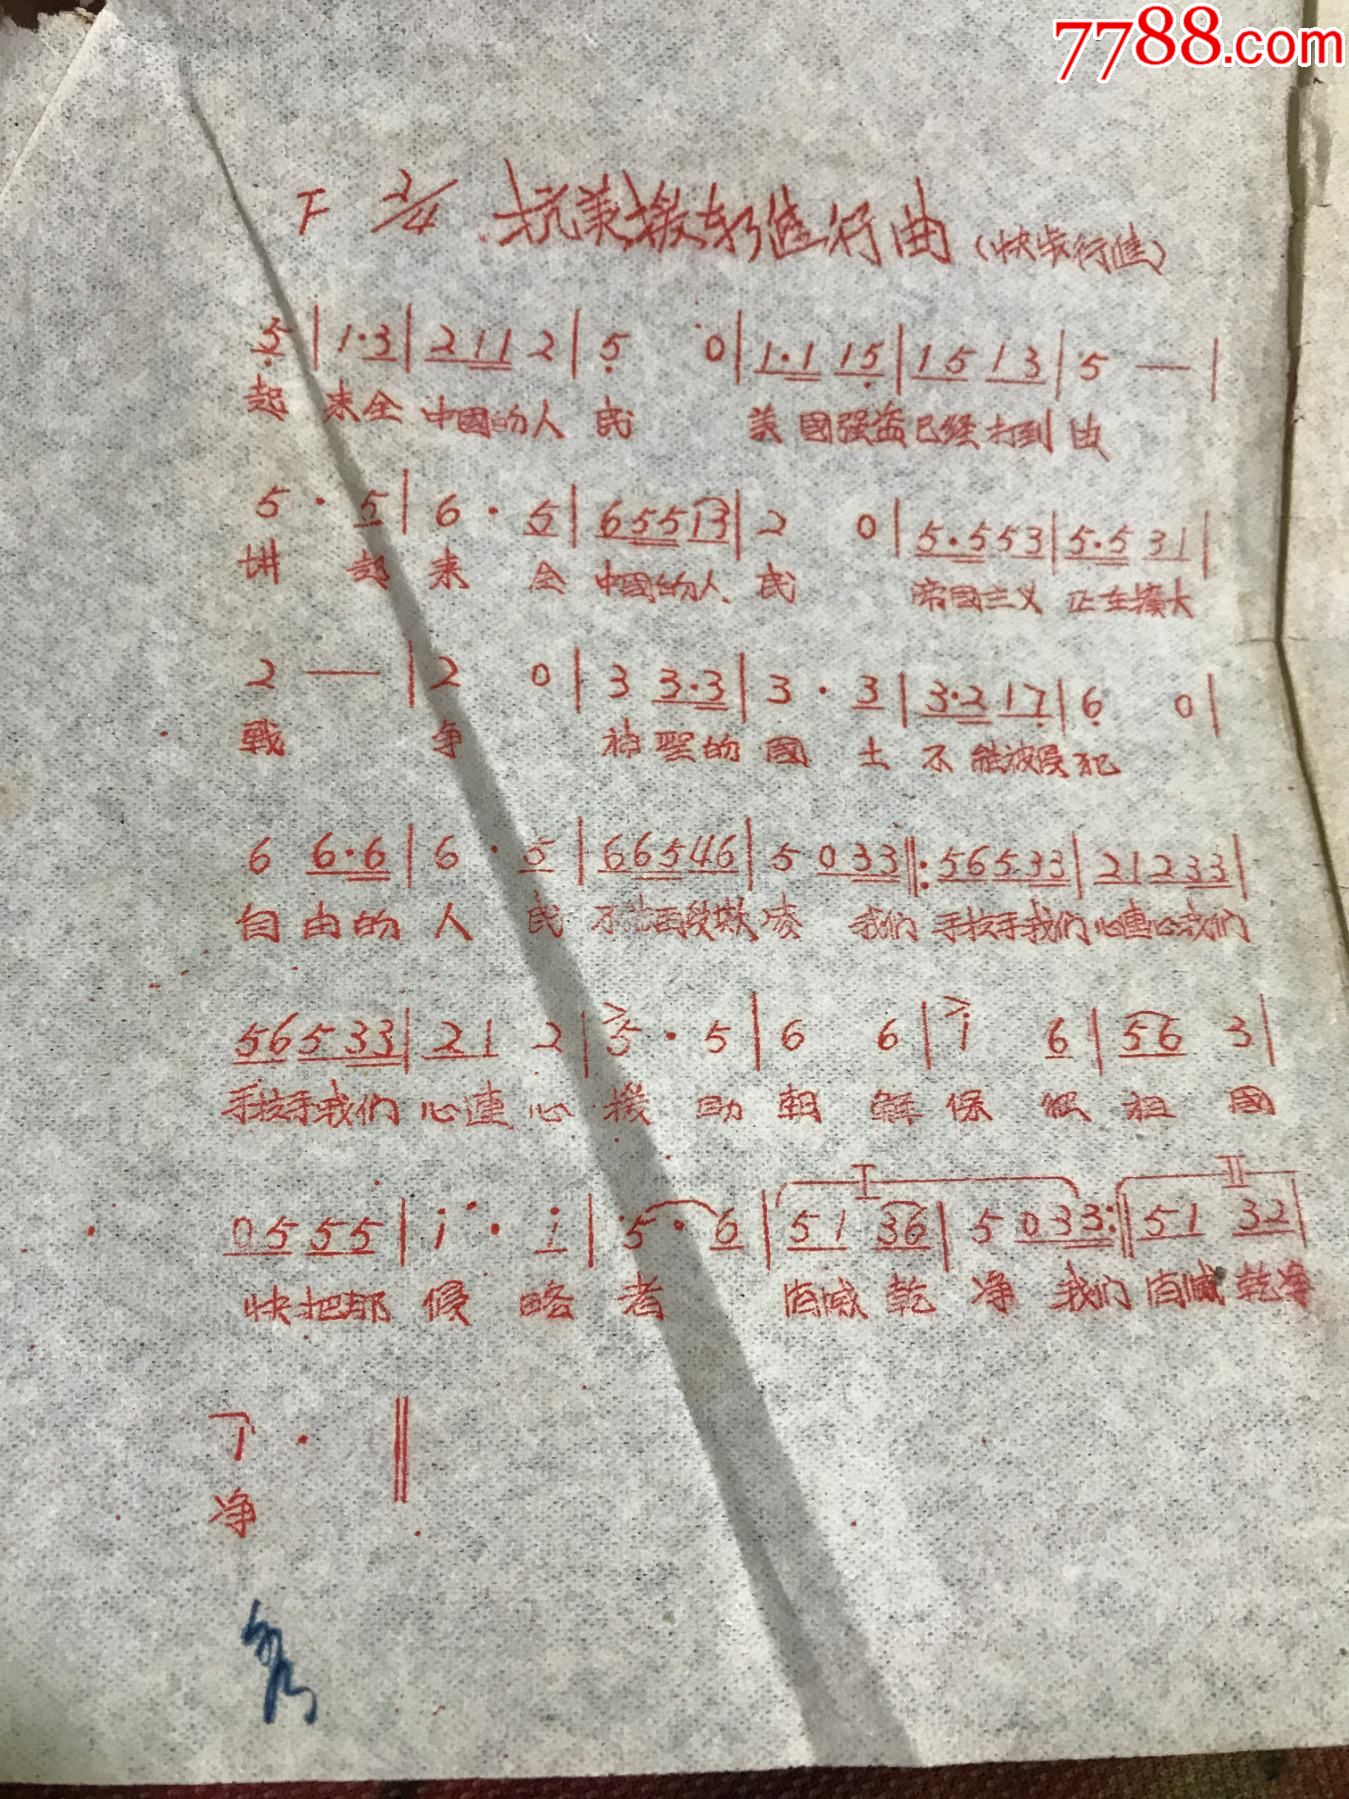 7788.com
F 2/4 抗美援朝進行曲(快步行進)
5 | 1·3 | 2 1 1 2 | 5 0 | 1·1 1 5 | 1 5 1 3 | 5 — |
起 来全 中國的人 民 美國强盗已经打到 由
5 · 5 | 6 · 5 | 6 5 5 1 3 | 2 0 | 5·5 5 3 | 5·5 3 1 |
讲 起 来 全 中國的人 民 帝國主义 正在擴大
2 — | 2 0 | 3 3·3 | 3 · 3 | 3·2 1 7 | 6 0 |
戰 争 神聖的 國 土 不能被侵犯
6 6·6 | 6 · 5 | 6 6 5 4 6 | 5 0 3 3 ‖: 5 6 5 3 3 | 2 1 2 3 3 |
自由的 人 民 不能再受欺凌 我们 手拉手我们 心連心我们
5 6 5 3 3 | 2 1 2 | 5 · 5 | 6 6 | i 6 | 5 6 3 |
手拉手我们 心連心 援 助 朝 鲜 保 衛 祖 國
I II
0 5 5 5 | i · i | 5 · 6 | 5 1 3 6 | 5 0 3 3 :‖ 5 1 3 2 |
快把那 侵 略 者 消滅 乾 净 我们 消滅 乾净
1 · ‖
净